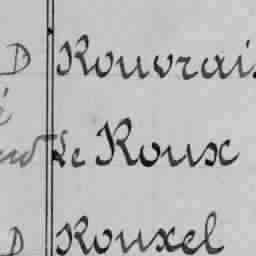 D Rouvrais
Le Roux
D Rouxel